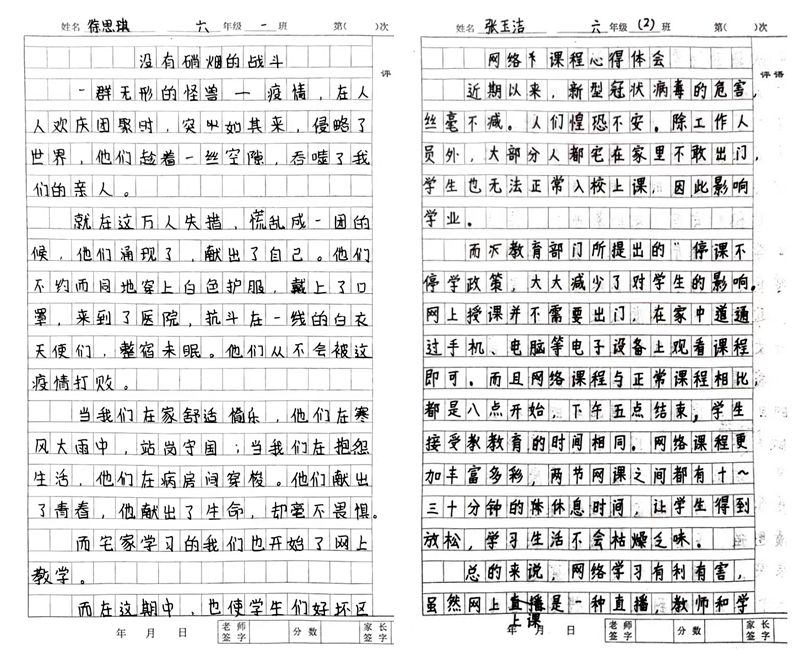 姓名 徐思琪 六 年级 一 班 第( )次
没有硝烟的战斗
评
一群无形的怪兽一疫情，在人
人欢庆团聚时，突如其来，侵略了
世界，他们趁着一丝空隙，吞噬了我
们的亲人。
就在这万人失措，慌乱成一团的
候，他们涌现了，献出了自己。他们
不约而同地穿上白色护服，戴上了口
罩，来到了医院，抗斗在一线的白衣
天使们，整宿未眠。他们从不会被这
疫情打败。
当我们在家舒适偷乐，他们在寒
风大雨中，站岗守国；当我们在抱怨
生活，他们在病房间穿梭。他们献出
了青春，他献出了生命，却毫不畏惧。
而宅家学习的我们也开始了网上
教学。
而在这期中，也使学生们好坏区
年 月 日 老师签字 分数 家长签字
姓名 张玉洁 六 年级 (2) 班 第( )次
网络课程心得体会
评语
近期以来，新型冠状病毒的危害，
丝毫不减。人们惶恐不安。除工作人
员外，大部分人都宅在家里不敢出门，
学生也无法正常入校上课，因此影响
学业。
而教育部门所提出的“停课不
停学政策，大大减少了对学生的影响。
网上授课并不需要出门，在家中通
过手机、电脑等电子设备上观看课程
即可。而且网络课程与正常课程相比，
都是八点开始，下午五点结束，学生
接受教教育的时间相同。网络课程更
加丰富多彩，两节网课之间都有十～
三十分钟的休息时间，让学生得到
放松，学习生活不会枯燥乏味。
总的来说，网络学习有利有害，
虽然网上直播是一种直播，教师和学
上课
年 月 日 老师签字 分数 家长签字